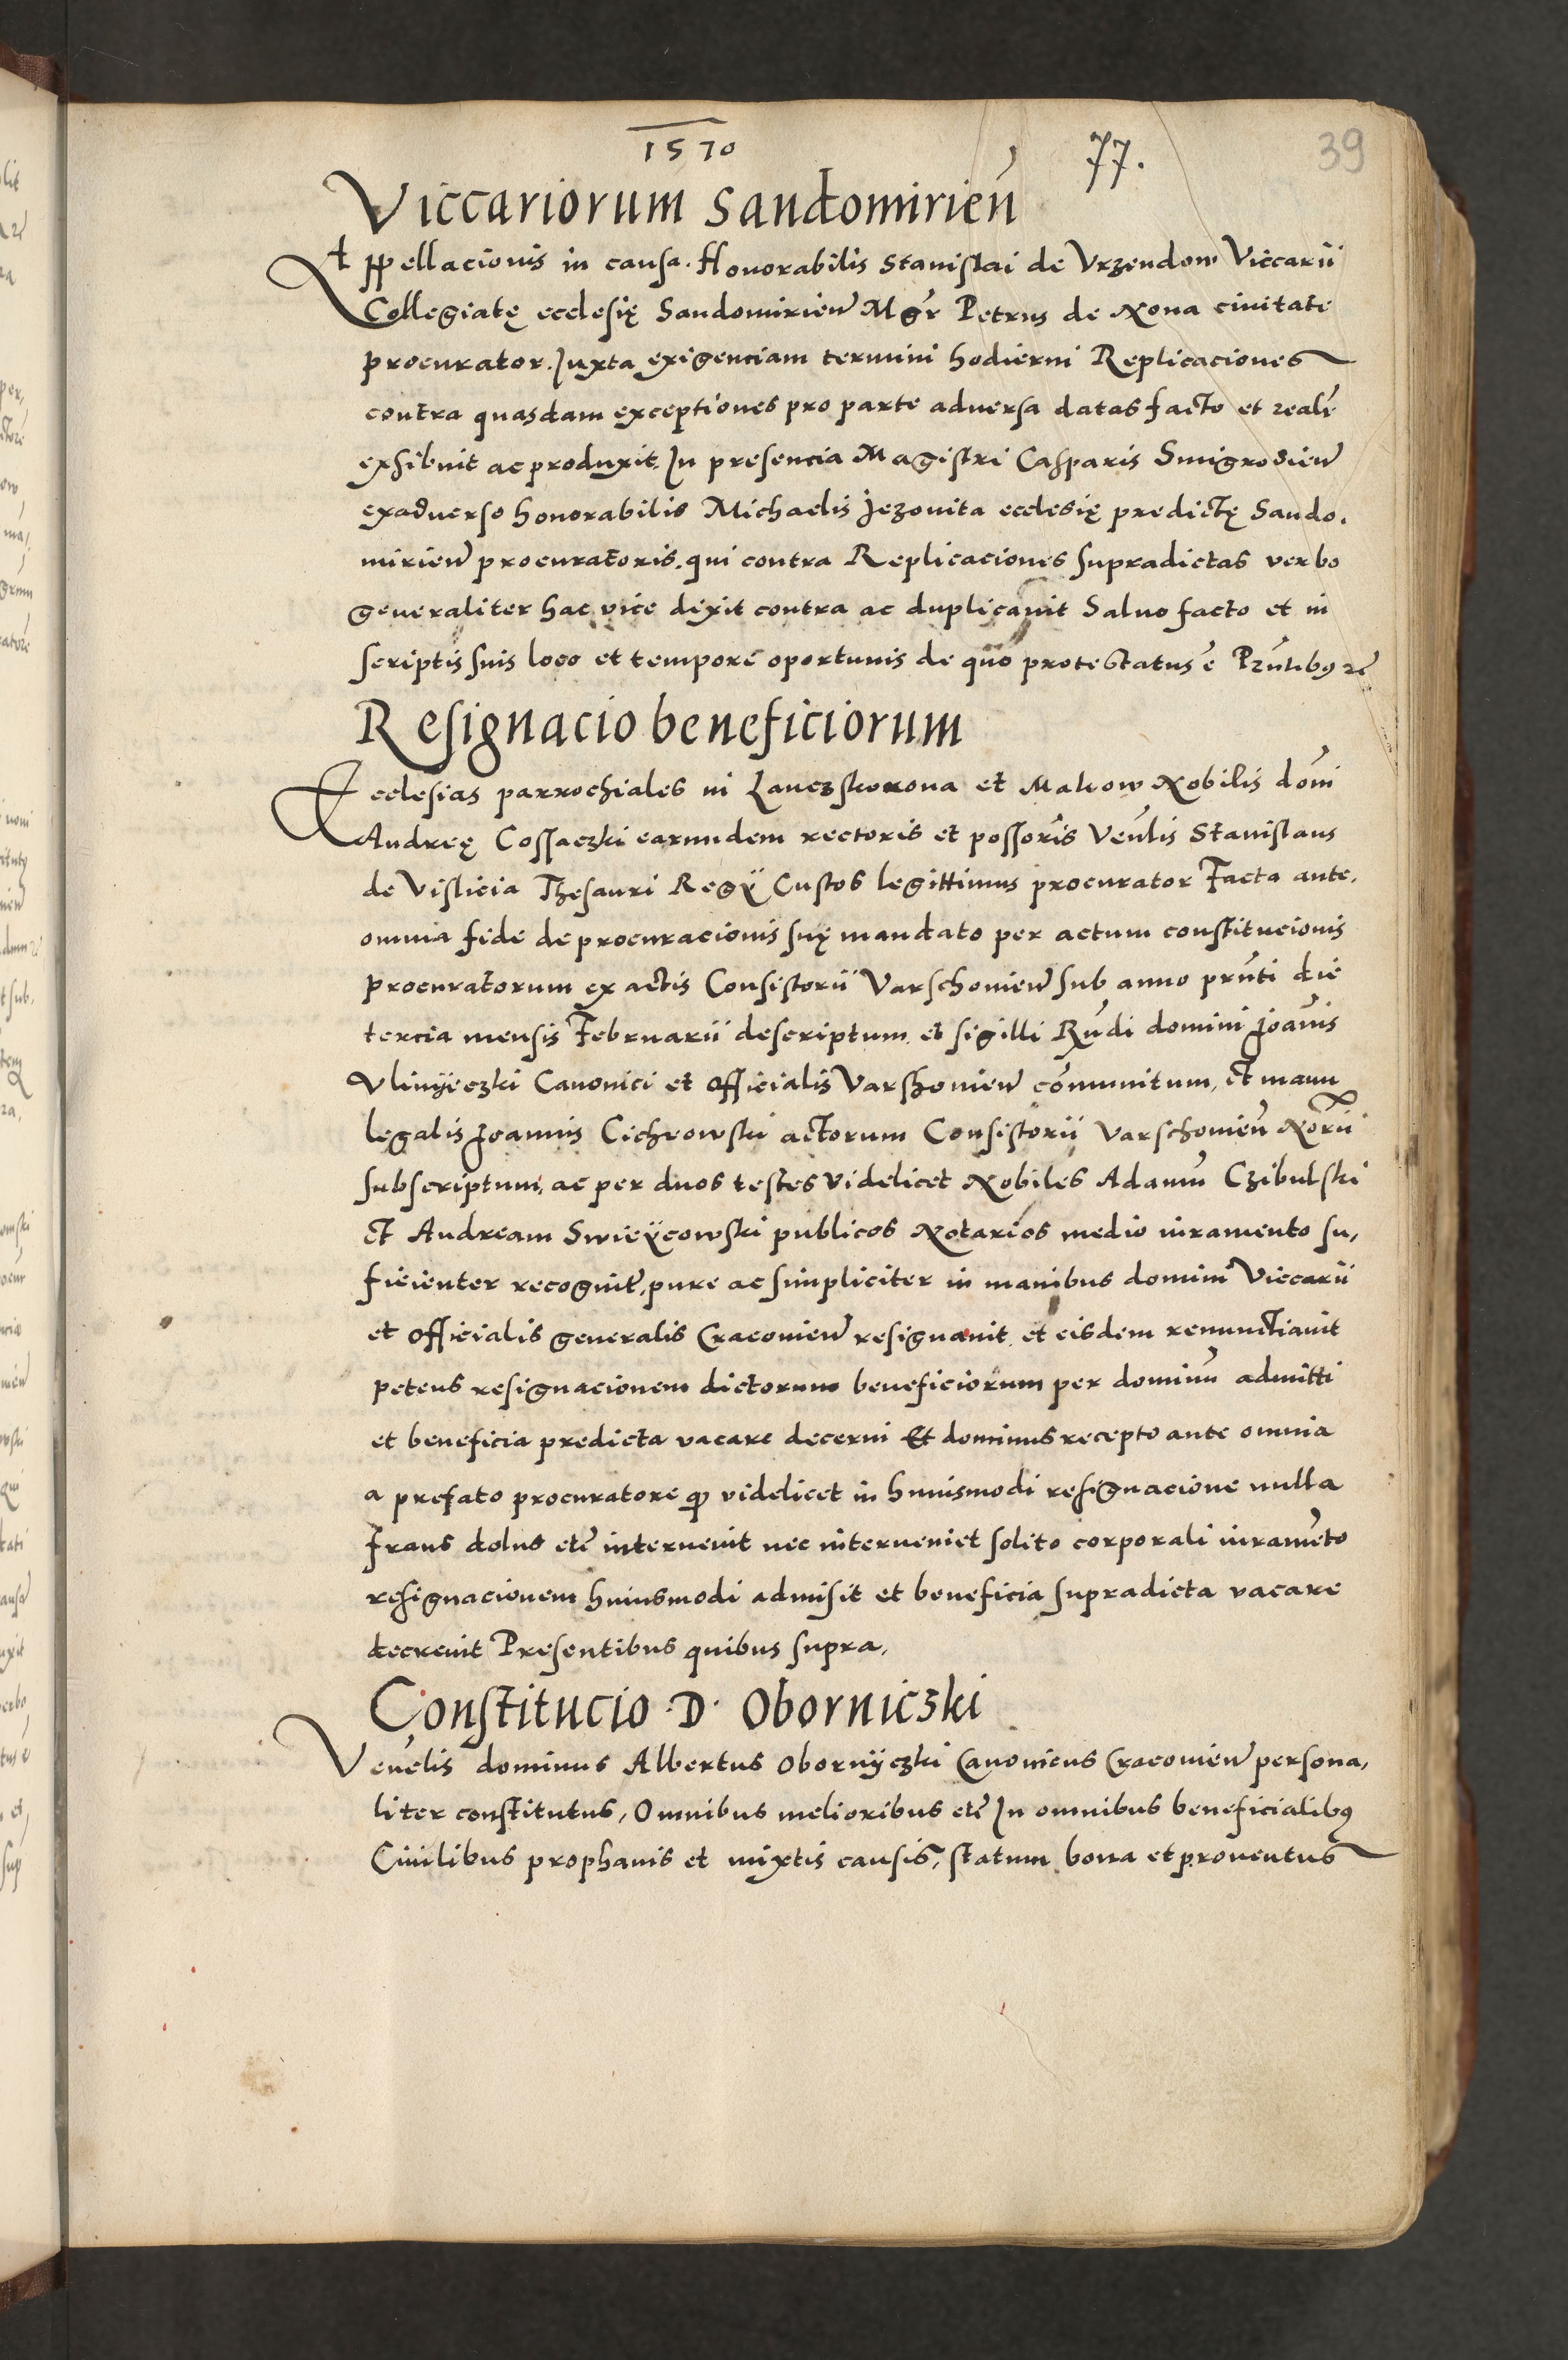 1570
77.
39
Viccariorum Sandomirień
Appellacionis in causa. Honorabilis Stanislai de Vrzendow Viccarii
Collegiatę ecclesię Sandomirień Mgr̃ Petrus de Noua ciuitate
procurator. Juxta exigenciam termini hodierni Replicaciones
contra quasdam exceptiones pro parte aduersa datas facto et realr̃
exhibuit ac produxit. In presencia Magistri Casparis Smigrodień
exaduerso honorabilis Michaelis Jezouita ecclesię predictę Sando.
mirień procuratoris. qui contra Replicaciones supradictas verbo
generaliter hac vice dixit contra ac duplicauit Saluo facto et in
scriptis suis loco et tempore oportunis de quo protestatus ẽ Pñtibꝰ
Resignacio beneficiorum
Ecclesias parrochiales in Lanczskorona et Makow Nobilis dom̃i
Andreę Cossaczki earundem rectoris et possor̃is Veñlis Stanislaus
de Vislicia Thesauri Regÿ Custos legittimus procurator Facta ante.
omnia fide de procuracionis suę mandato per actum constitucionis
procuratorum ex actis Consistorii Varschouień sub anno prñti die
tercia mensis Februarii descriptum et sigilli Rñdi domini Joañis
Vlinÿeczki Canonici et officialis Varshouień com̃unitum, et manu
legalis Joannis Cichrowski actorum Consistorii Varschouień Nor̃ii
subscriptum, ac per duos testes videlicet Nobiles Adamũ Czibulski
et Andream Swieÿcowski publicos Notarios medio iuramento su,
ficienter recognit̃, pure ac simpliciter in manibus domini Viccarii
et officialis generalis Cracouień resignauit et eisdem renunctiauit
petens resignacionem dictorum beneficiorum per dominũ admitti
et beneficia predicta vacare decerni Et dominus recepto ante omnia
a prefato procuratore ꝙ videlicet in huiusmodi resignacione nulla
fraus dolus etc̃ interuenit nec interueniet solito corporali iuramẽto
resignacionem huiusmodi admisit et beneficia supradicta vacare
decreuit Presentibus quibus supra,
Constitucio .D. Oborniczki
Veñelis dominus Albertus Obornÿczki Canonicus Cracouień persona,
liter constitutus, Omnibus melioribus etc̃ In omnibus beneficialibꝰ
Ciuilibus prophanis et mixtis causis, statum bona et prouentus